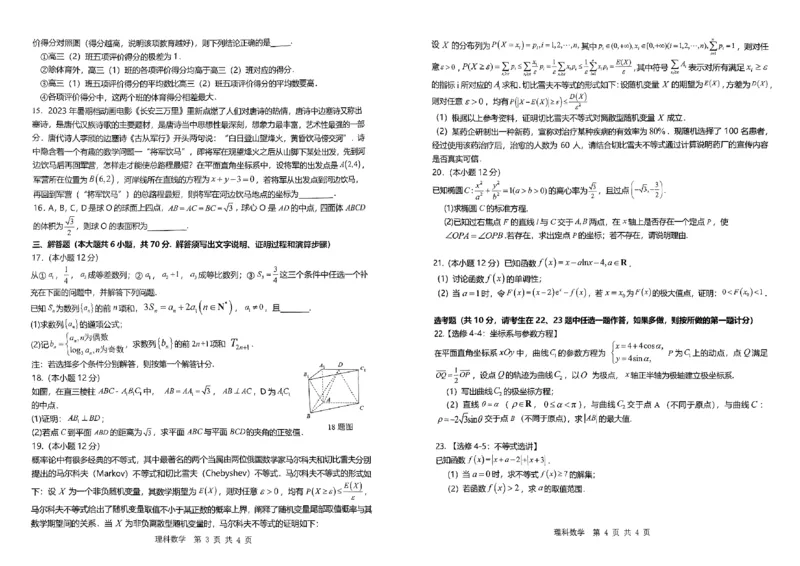 价得分对照图（得分越高，说明该项教育越好），则下列结论正确的是____.
①高三（2）班五项评价得分的极差为1.
②除体育外，高三（1）班的各项评价得分均高于高三（2）班对应的得分.
③高三（1）班五项评价得分的平均数比高三（2）班五项评价得分的平均数要高.
④各项评价得分中，这两个班的体育得分相差最大.
15. 2023年暑期档动画电影《长安三万里》重新点燃了人们对唐诗的热情，唐诗中边塞诗又称出
塞诗，是唐代汉族诗歌的主要题材，是唐诗当中思想性最深刻，想象力最丰富，艺术性最强的一部
分. 唐代诗人李颀的边塞诗《古从军行》开头两句说：“白日登山望烽火，黄昏饮马傍交河”. 诗
中隐含着一个有趣的数学问题—“将军饮马”，即将军在观望烽火之后从山脚下某处出发，先到河
边饮马后再回军营，怎样走才能使总路程最短？在平面直角坐标系中，设将军的出发点是A(2,4)，
军营所在位置为B(6,2)，河岸线所在直线的方程为x+y-3=0，若将军从出发点到河边饮马，
再回到军营（“将军饮马”）的总路程最短，则将军在河边饮马地点的坐标为________.
16. A, B, C, D是球O的球面上四点，AB=AC=BC=3，球心O是AD的中点，四面体ABCD
的体积为 3/2，则球O的表面积为________.
三、解答题（本大题共6小题，共70分. 解答须写出文字说明、证明过程和演算步骤）
17.（本小题12分）
从①a₁, 1/4, a₂成等差数列；②a₁, a₂+1, a₃成等比数列；③S₃=3/4这三个条件中任选一个补
充在下面的问题中，并解答下列问题.
已知Sₙ为数列{aₙ}的前n项和，3Sₙ=aₙ+2a₁(n∈N*)，a₁≠0，且______.
(1)求数列{aₙ}的通项公式；
(2)记bₙ={aₙ,n为偶数 log₂aₙ,n为奇数，求数列{bₙ}的前2n+1项和T₂ₙ₊₁.
注：若选择多个条件分别解答，则按第一个解答计分.
18.（本小题12分）
如图，在直三棱柱ABC-A₁B₁C₁中，AB=AA₁=3，AB⊥AC，D为A₁C₁
的中点.
(1)证明：AB₁⊥BD；
(2)若点C到平面ABD的距离为3，求平面ABC与平面BCD的夹角的正弦值.
18题图
19.（本小题12分）
概率论中有很多经典的不等式，其中最著名的两个当属由两位俄国数学家马尔科夫和切比雪夫分别
提出的马尔科夫（Markov）不等式和切比雪夫（Chebyshev）不等式. 马尔科夫不等式的形式如
下：设X为一个非负随机变量，其数学期望为E(X)，则对任意ε>0，均有P(X≥ε)≤E(X)/ε，
马尔科夫不等式给出了随机变量取值不小于某正数的概率上界，阐释了随机变量尾部取值概率与其
数学期望间的关系. 当X为非负离散型随机变量时，马尔科夫不等式的证明如下：
理科数学 第 3 页 共 4 页
设X的分布列为P(X=xᵢ)=pᵢ,i=1,2,⋯,n,其中pᵢ∈(0,+∞),xᵢ∈[0,+∞)(i=1,2,⋯,n),∑pᵢ=1，则对任
的指标i所对应的Aᵢ求和. 切比雪夫不等式的形式如下：设随机变量X的期望为E(X),方差为D(X)，
则对任意ε>0，均有P(|X-E(X)|≥ε)≤D(X)/ε²
（1）根据以上参考资料，证明切比雪夫不等式对离散型随机变量X成立.
（2）某药企研制出一种新药，宣称对治疗某种疾病的有效率为80%. 现随机选择了100名患者，
经过使用该药治疗后，治愈的人数为60人，请结合切比雪夫不等式通过计算说明药厂的宣传内容
是否真实可信.
20.（本小题12分）
(1)求椭圆C的标准方程.
(2)已知过右焦点F的直线l与C交于A,B两点，在x轴上是否存在一个定点P，使
∠OPA=∠OPB.若存在，求出定点P的坐标；若不存在，请说明理由.
21.（本小题12分）已知函数f(x)=x-alnx-4,a∈R.
（1）讨论函数f(x)的单调性；
（2）当a=1时，令F(x)=(x-2)eˣ-f(x)，若x₀为F(x)的极大值点，证明：0<F(x₀)<1.
选考题（共10分，请考生在22、23题中任选一题作答，如果多做，则按所做的第一题计分）
22.【选修4-4：坐标系与参数方程】
在平面直角坐标系xOy中，曲线C₁的参数方程为{x=4+4cosα, y=4sinα, P为C₁上的动点，点Q满足
OQ=1/2OP，设点Q的轨迹为曲线C₂. 以O为极点，x轴正半轴为极轴建立极坐标系.
（1）写出曲线C₂的极坐标方程；
（2）直线θ=α（ρ∈R，0≤α<π），与曲线C₂交于点A（不同于原点），与曲线C：
ρ=-23sinθ交于点B（不同于原点），求|AB|的最大值.
23. 【选修4-5：不等式选讲】
已知函数f(x)=|x+a-2|+|x+3|.
（1）当a=0时，求不等式f(x)≥7的解集；
（2）若函数f(x)>2，求a的取值范围.
理科数学 第 4 页 共 4 页